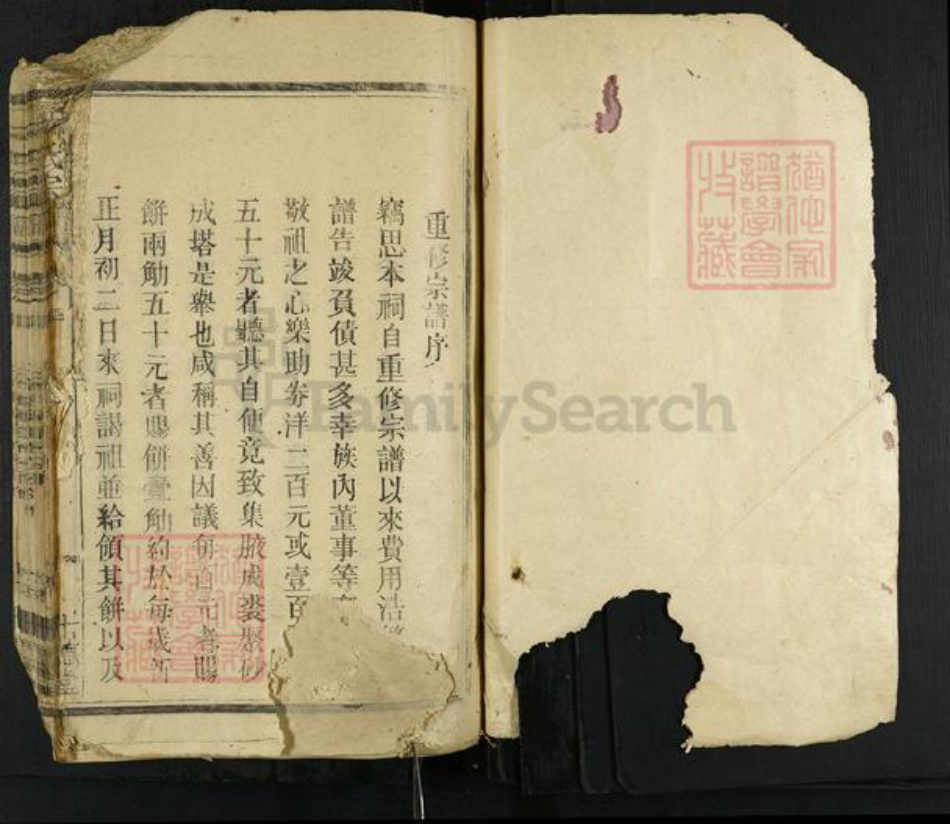 重修宗譜序
竊思本祠自重修宗譜以來費用浩
譜告竣負債甚多幸族內董事等
敬祖之心樂助券洋二百元或壹百
五十元者聽其自便竟致集腋成裘聚砂
成塔是舉也咸稱其善因議每百元者賜
餅兩觔五十元者賜餅壹觔約於每歲新
正月初二日來祠謁祖並給領其餅以及
FamilySearch
譜學會
收藏